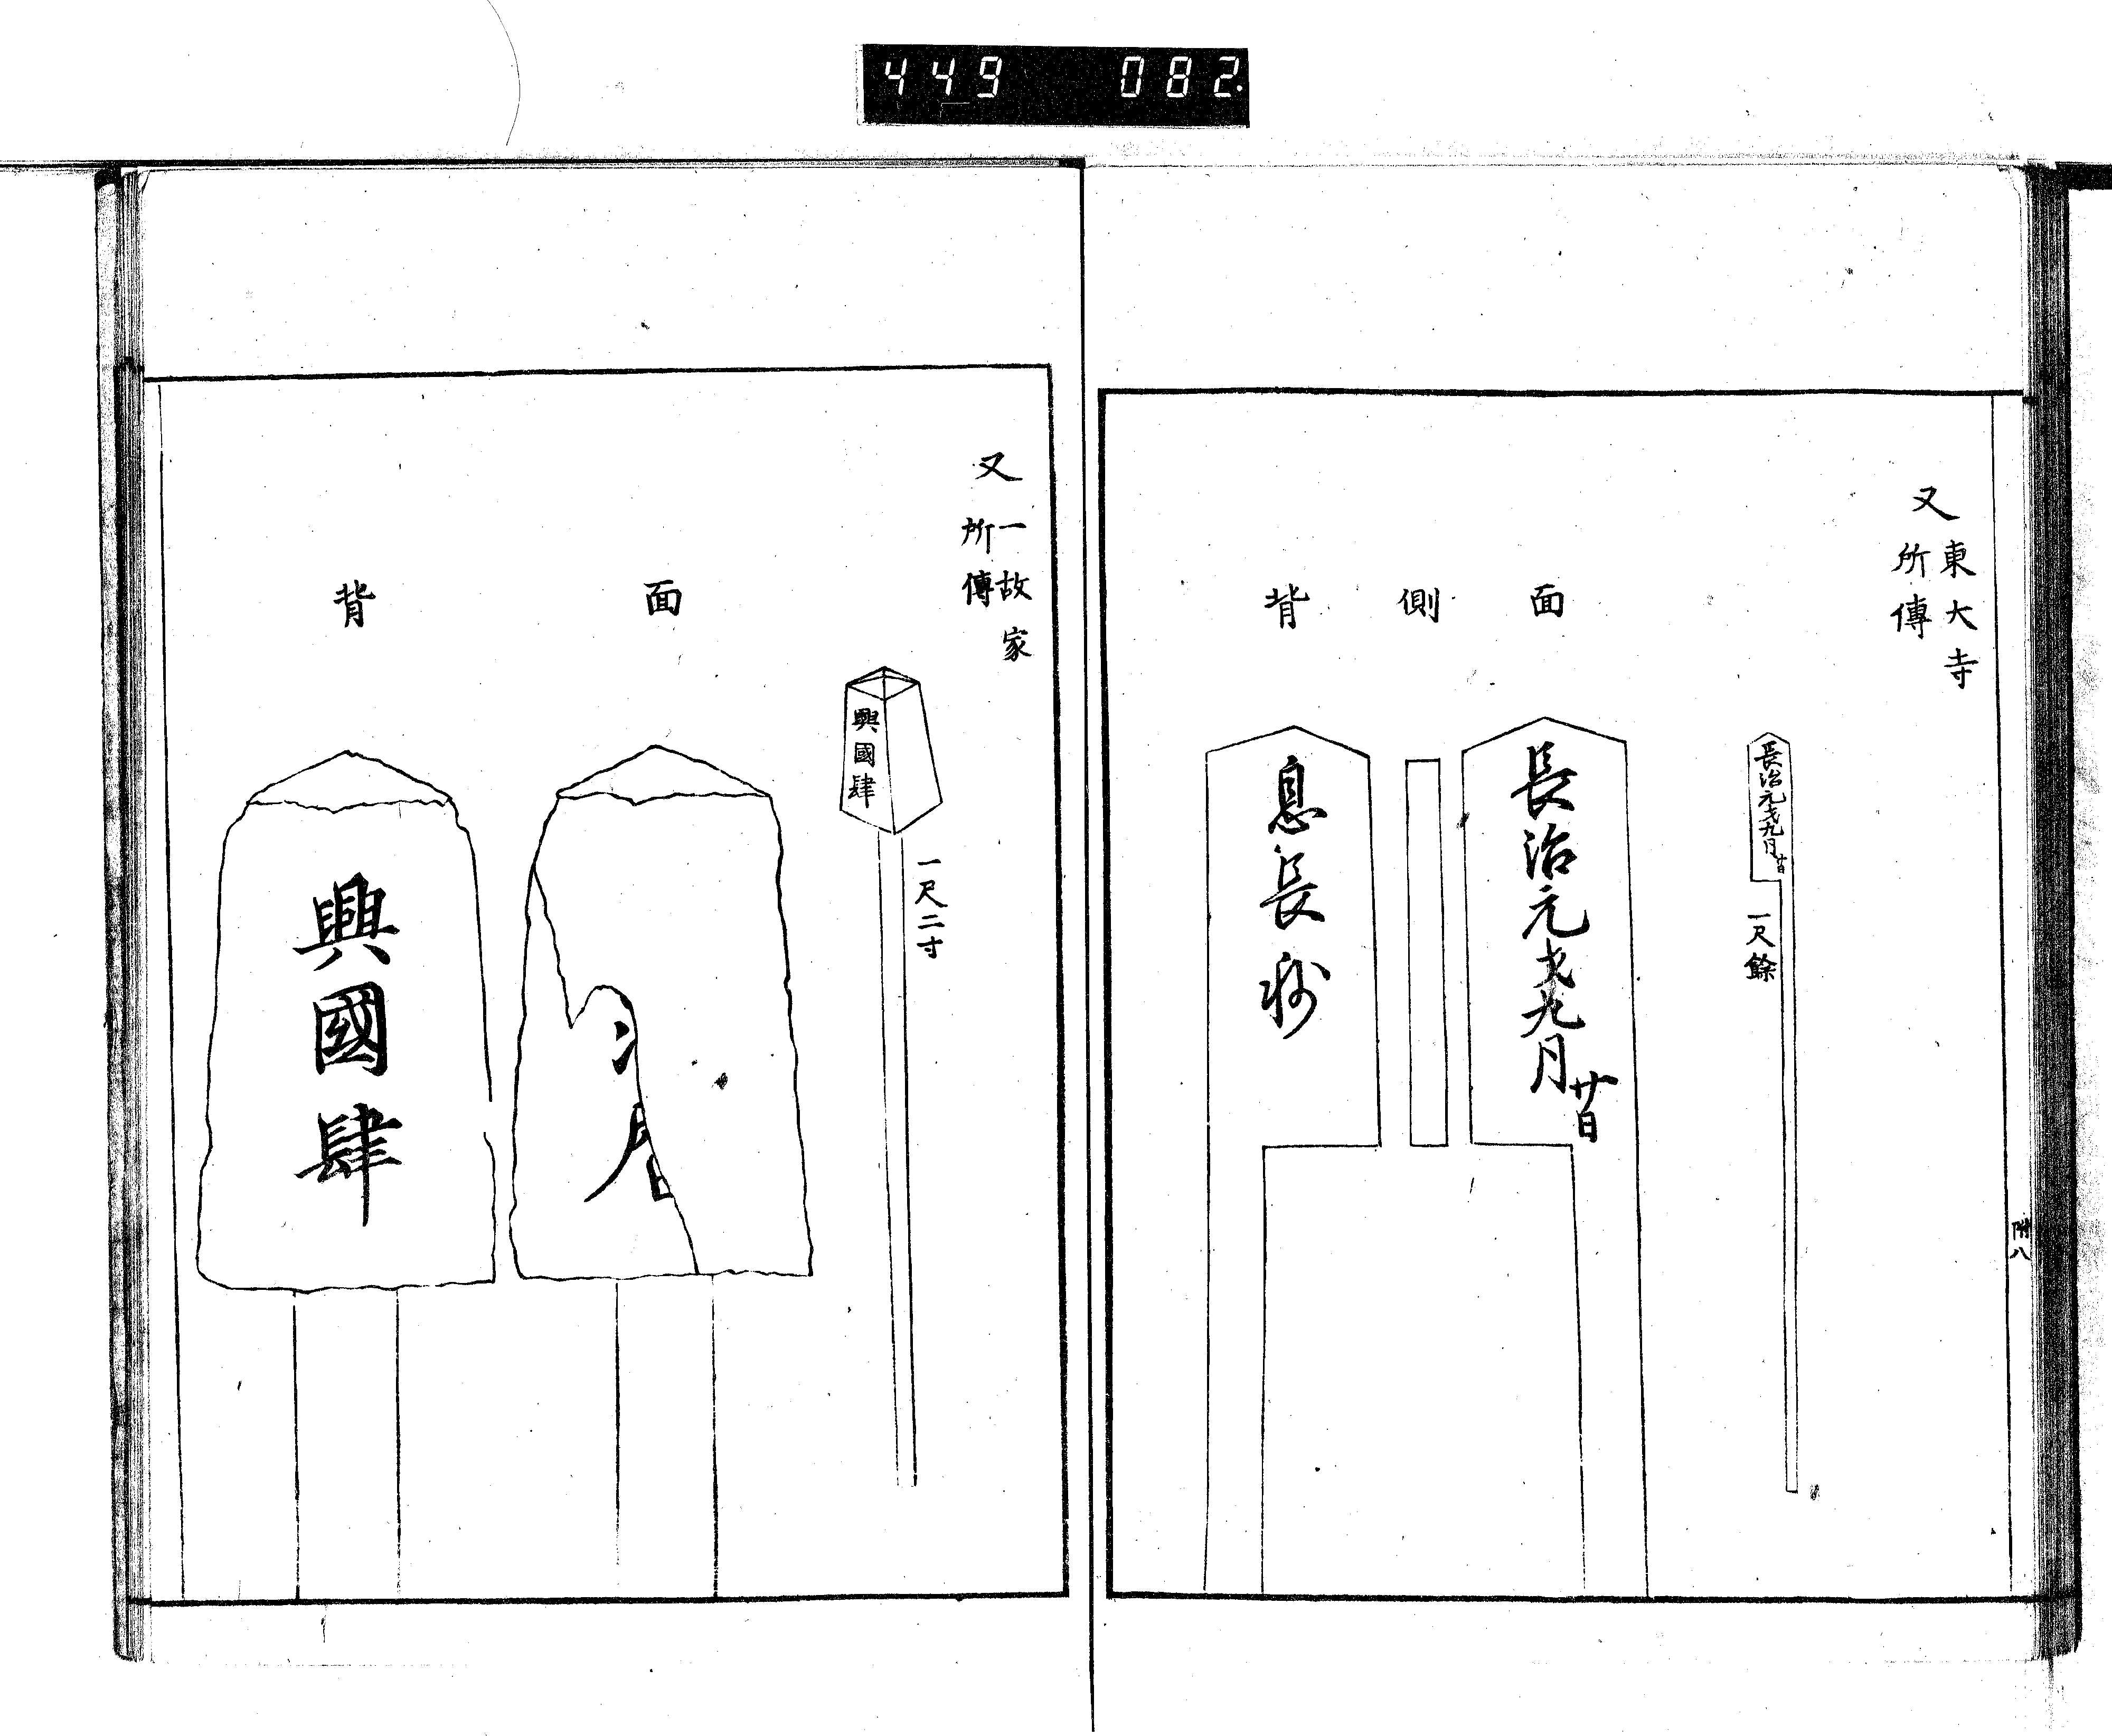 449 082.
又
東大寺
所傳
長治元戈九月廿日
一尺餘
面
長治元戈九月廿日
側
背
息長
附八
又
一故家
所傳
興國肆
一尺二寸
面
背
興國肆